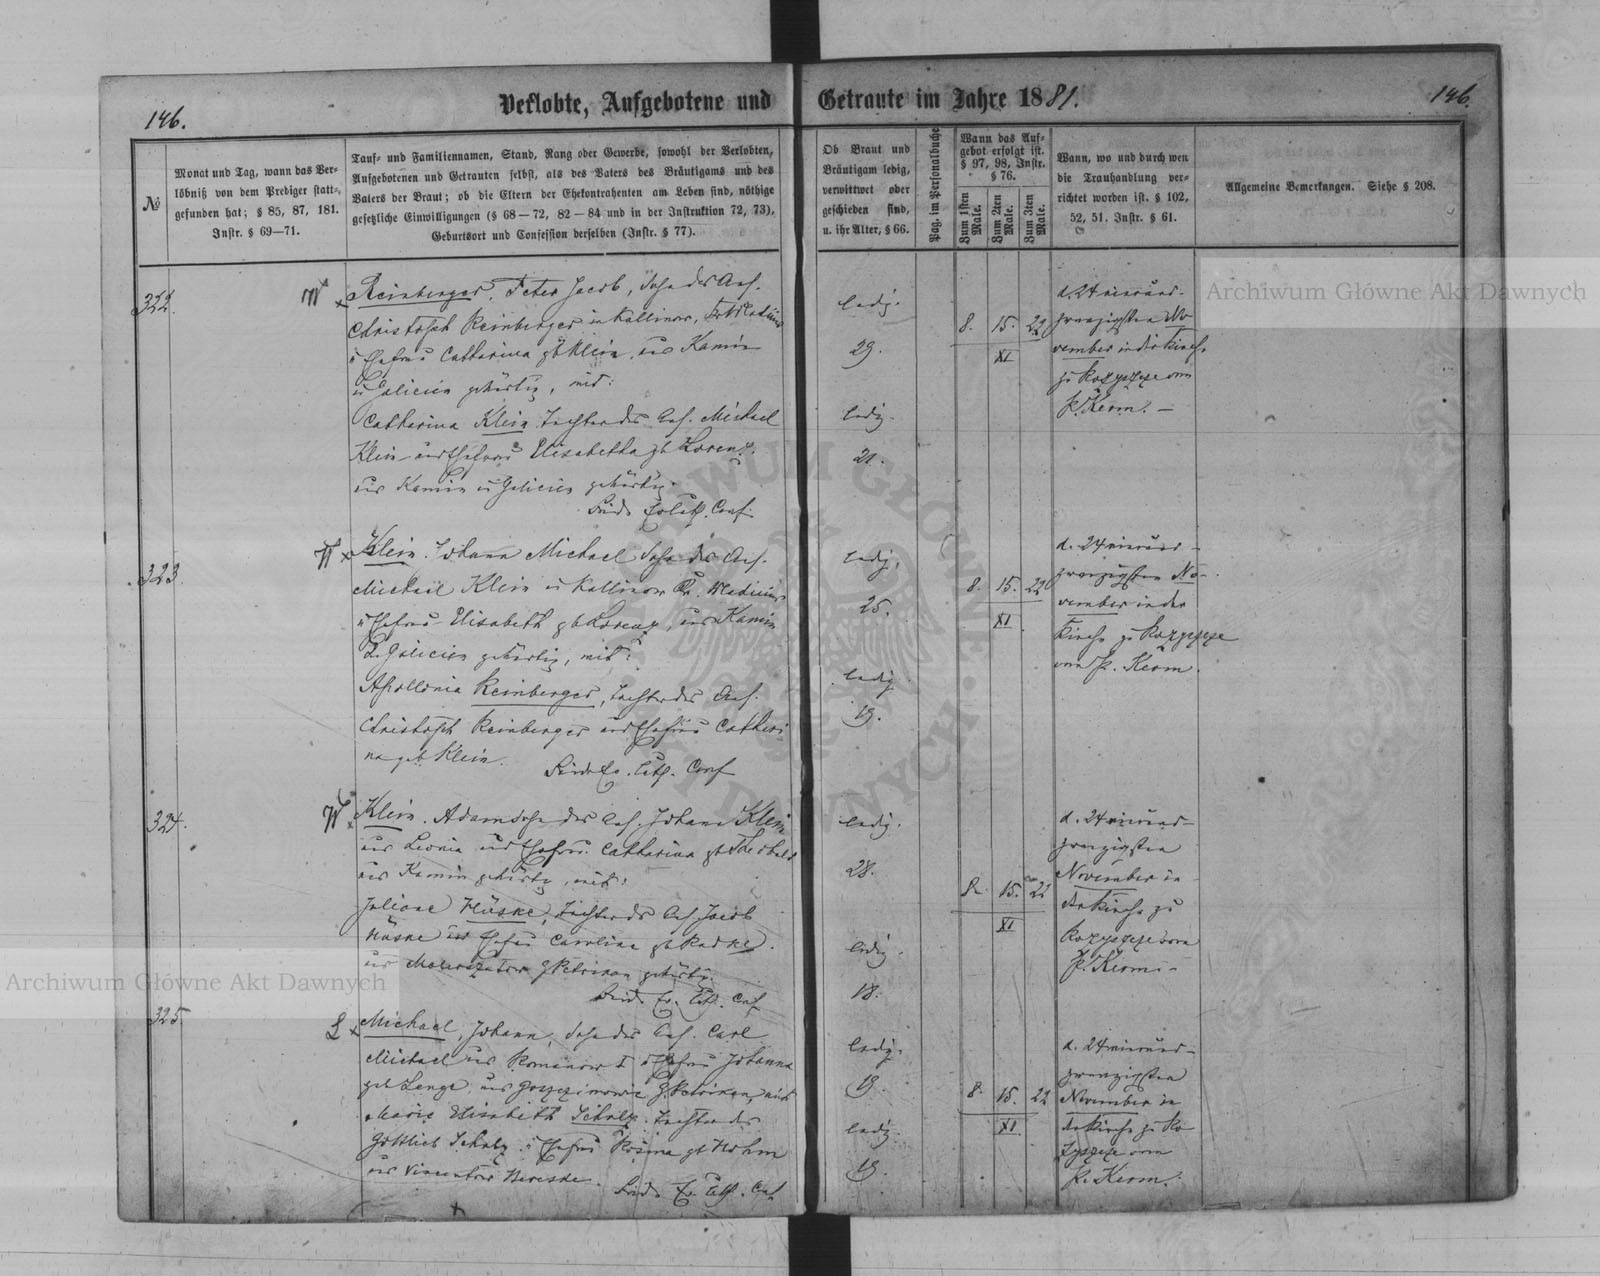 146.
Verlobte, Aufgebotene und Getraute im Jahre 1881.
146.
№
Monat und Tag, wann das Ver-
löbniß von dem Prediger statt-
gefunden hat; § 85, 87, 181.
Instr. § 69—71.
Tauf- und Familiennamen, Stand, Rang oder Gewerbe, sowohl der Verlobten,
Aufgebotenen und Getrauten selbst, als des Vaters des Bräutigams und des
Vaters der Braut; ob die Eltern der Ehekontrahenten am Leben sind, nöthige
gesetzliche Einwilligungen (§ 68—72, 82—84 und in der Instruktion 72, 73),
Geburtsort und Confession derselben (Instr. § 77).
Ob Braut und
Bräutigam ledig,
verwittwet oder
geschieden sind,
u. ihr Alter, § 66.
Pag. im Personalbuche
Wann das Auf-
gebot erfolgt ist.
§ 97, 98, Instr.
§ 76.
Zum 1sten Male.
Zum 2ten Male.
Zum 3ten Male.
Wann, wo und durch wen
die Trauhandlung ver-
richtet worden ist. § 102,
52, 51. Instr. § 61.
Allgemeine Bemerkungen. Siehe § 208.
322.
Reinberger, Peter Jacob, Sohn des Col.
Christoph Reinberger in Kallinow,
u Ehefrau Catharina gb Klein, aus Kamin
in Galicien gebürtig, mit:
Catharina Klein Tochter des Col. Michael
Klein und Ehefrau Elisabetha gb Lorenz.
aus Kamin in Galicien gebürtig.
Beide Ev. Luth. Conf.
ledig.
29.
ledig.
21.
8. 15. 22
XI
d. 24 vierund-
zwanzigsten No-
vember in der Kirche
zu Rozyszcze vom
P. Kerm. —
323.
Klein. Johann Michael Sohn des Col.
Michael Klein in Kallinow
u Ehefrau Elisabeth gb Lorenz, aus Kamin
in Galicien gebürtig, mit:
Apollonia Reinberger, Tochter des Col.
Christoph Reinberger und Ehefrau Cathari
na geb Klein.
Beide Ev. Luth. Conf
ledig.
25.
ledig
19.
8. 15. 22
XI
d. 24 vierund-
zwanzigsten No-
vember in der
Kirche zu Rozyszcze
vom P. Kerm.
324.
Klein. Adam Sohn des Col. Johann Klein
aus Leonia und Ehefrau Catharina gb Theobald
aus Kamin gebürtig, mit:
Juliane Häske, Tochter des Col. Jacob
Häske und Ehefrau Carolina gb Radke.
aus gebürtig.
Beide Ev. Luth. Conf
ledig.
28.
ledig.
18.
8. 15. 22
XI
d. 24 vierund-
zwanzigsten
November in
der Kirche zu
Rozyszcze vom
P. Kerm. -
325.
Michael, Johann, Sohn des Col. Carl
Michael aus Romanow I u Ehefrau Johanna
geb Lenge, aus mit
Marie Elisabeth Schulz. Tochter des
Gottlieb Schulz u Ehefrau Rosina gb Hohm
aus
Beide Ev. Luth. Conf
ledig.
19.
ledig.
19.
8. 15. 22
XI
d. 24 vierund-
zwanzigsten
November in
der Kirche zu Ro-
zyszcze vom
P. Kerm.
Archiwum Główne Akt Dawnych
Archiwum Główne Akt Dawnych